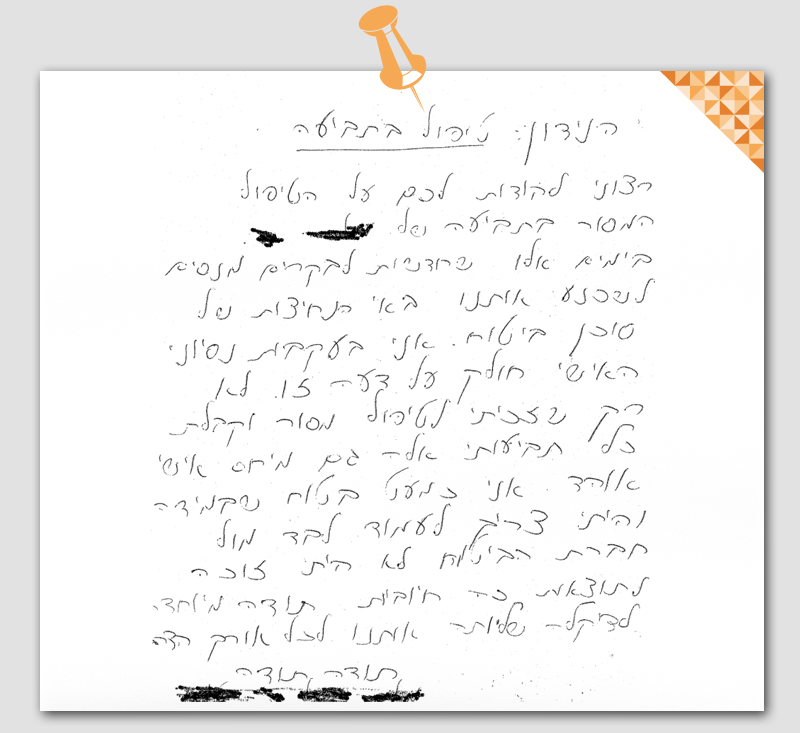 הנידון: טיפול בתביעה
רצוני להודות לכם על הטיפול
המסור בתביעה של
בימים אלו שחדשות לבקרים מנסים
לשכנע אותנו באי הנחיצות של
סוכן ביטוח. אני בעקבות נסיוני
האישי חולק על דעה זו. לא
רק שזכיתי לטיפול מסור וקבלת
כל תביעותי אלא גם מיחס אישי
אוהד. אני כמעט בטוח שבמידה
והיתי צריך לעמוד לבד מול
חברת הביטוח לא היתי זוכה
לתוצאות כה חיובית תודה מיוחדת
לדיקלה שליותה אותנו לכל אורך הדרך
תודה תודה